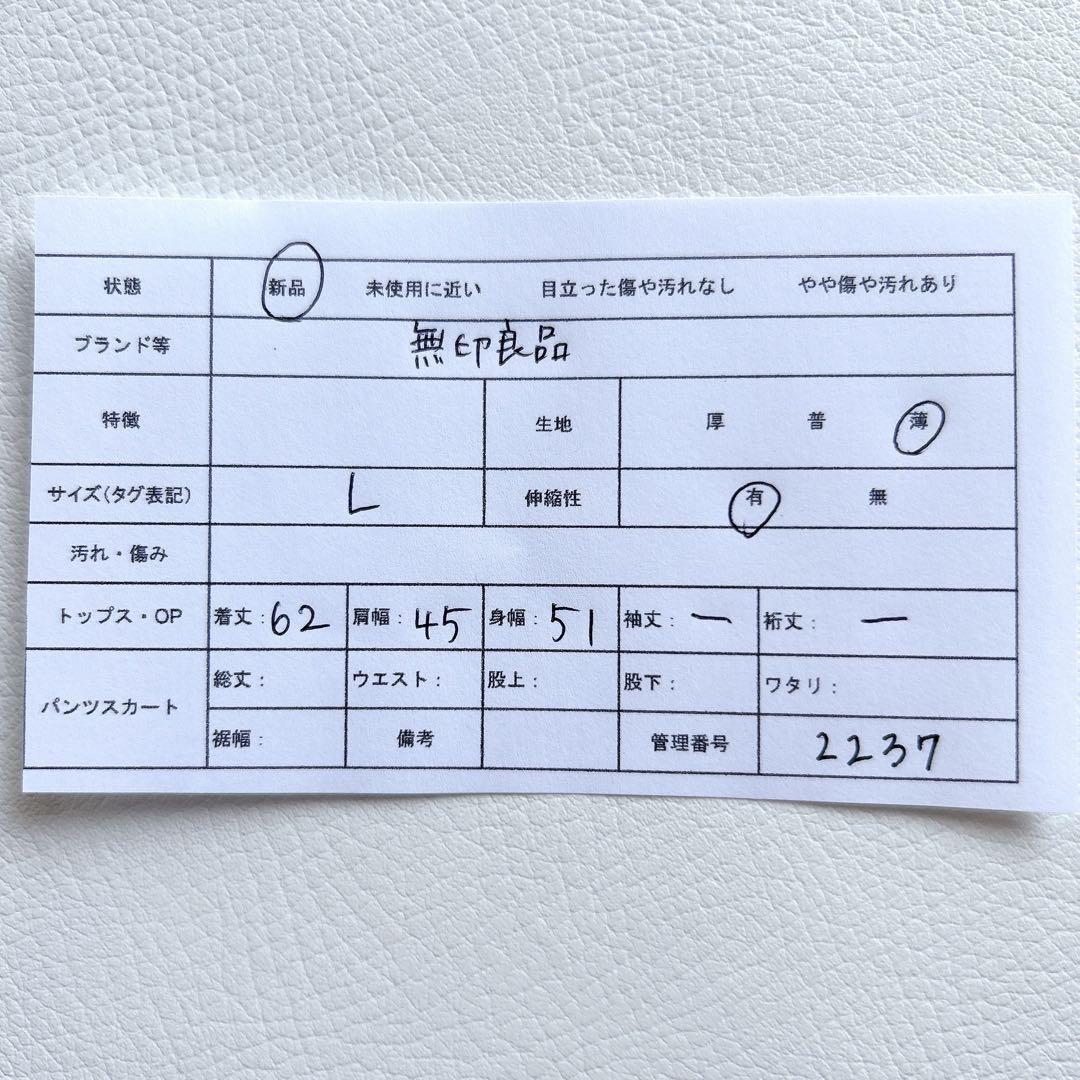 状態 新品 未使用に近い 目立った傷や汚れなし やや傷や汚れあり
ブランド等 無印良品
特徴 生地 厚 普 薄
サイズ(タグ表記) L 伸縮性 有 無
汚れ・傷み
トップス・OP 着丈:62 肩幅:45 身幅:51 袖丈:ー 裄丈:ー
パンツスカート 総丈: ウエスト: 股上: 股下: ワタリ:
裾幅: 備考 管理番号 2237